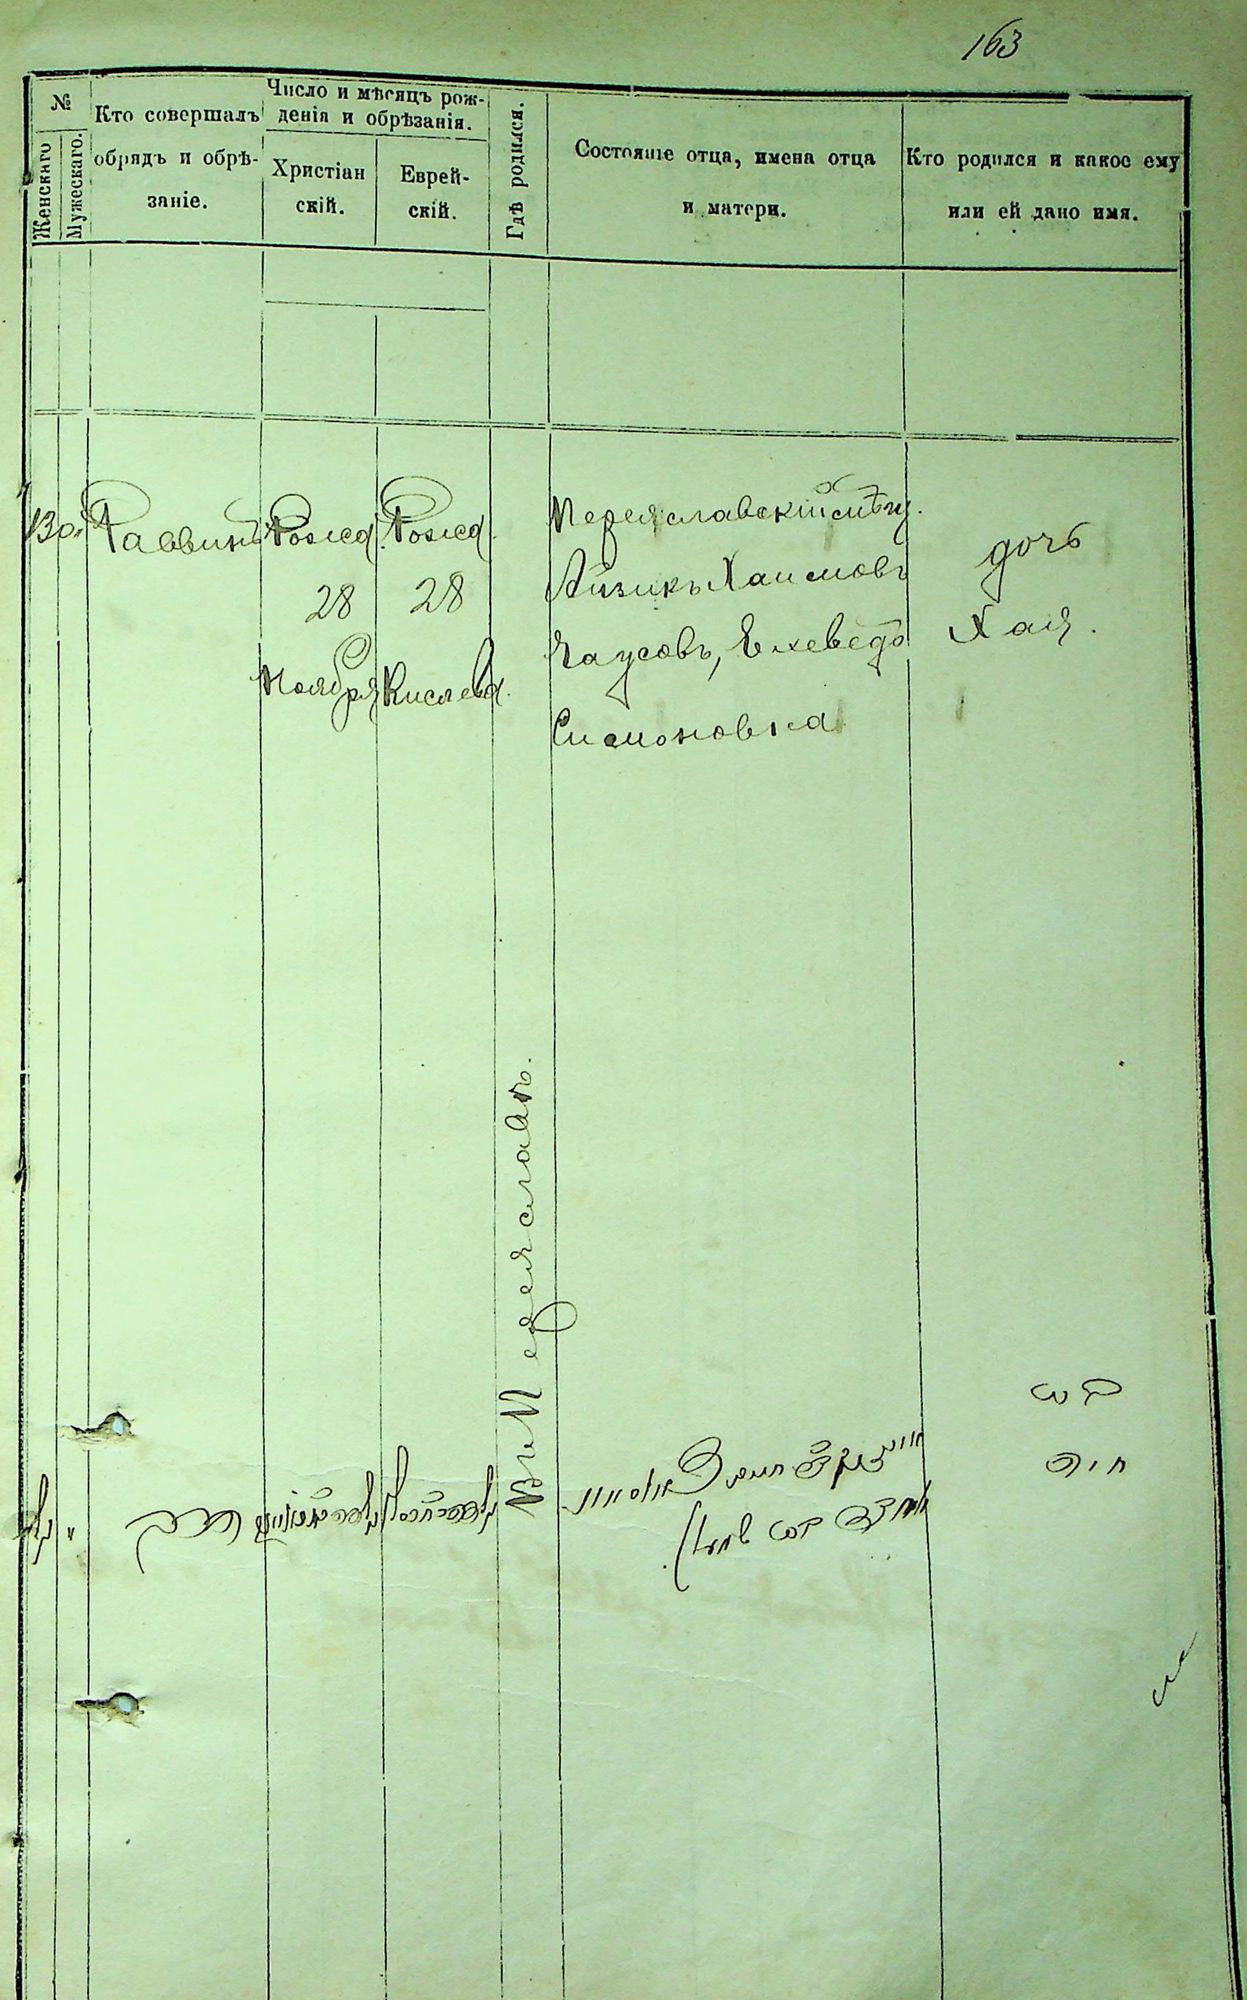 163
№
Женскаго
Мужескаго.
Кто совершалъ
обрядъ и обрѣ-
заніе.
Число и мѣсяцъ рож-
денія и обрѣзанія.
Христіан
скій.
Еврей-
скій.
Гдѣ родился.
Состояніе отца, имена отца
и матери.
Кто родился и какое ему
или ей дано имя.
130.
Раввинъ
Рожд.
28
Ноября
Рожд.
28
Кислева.
Въ Переяславѣ.
Переяславскій мѣщ.
Айзикъ Хаимовъ
Чаусовъ, Ехеведъ
Симоновна
дочь
Хая.
בת
חיה